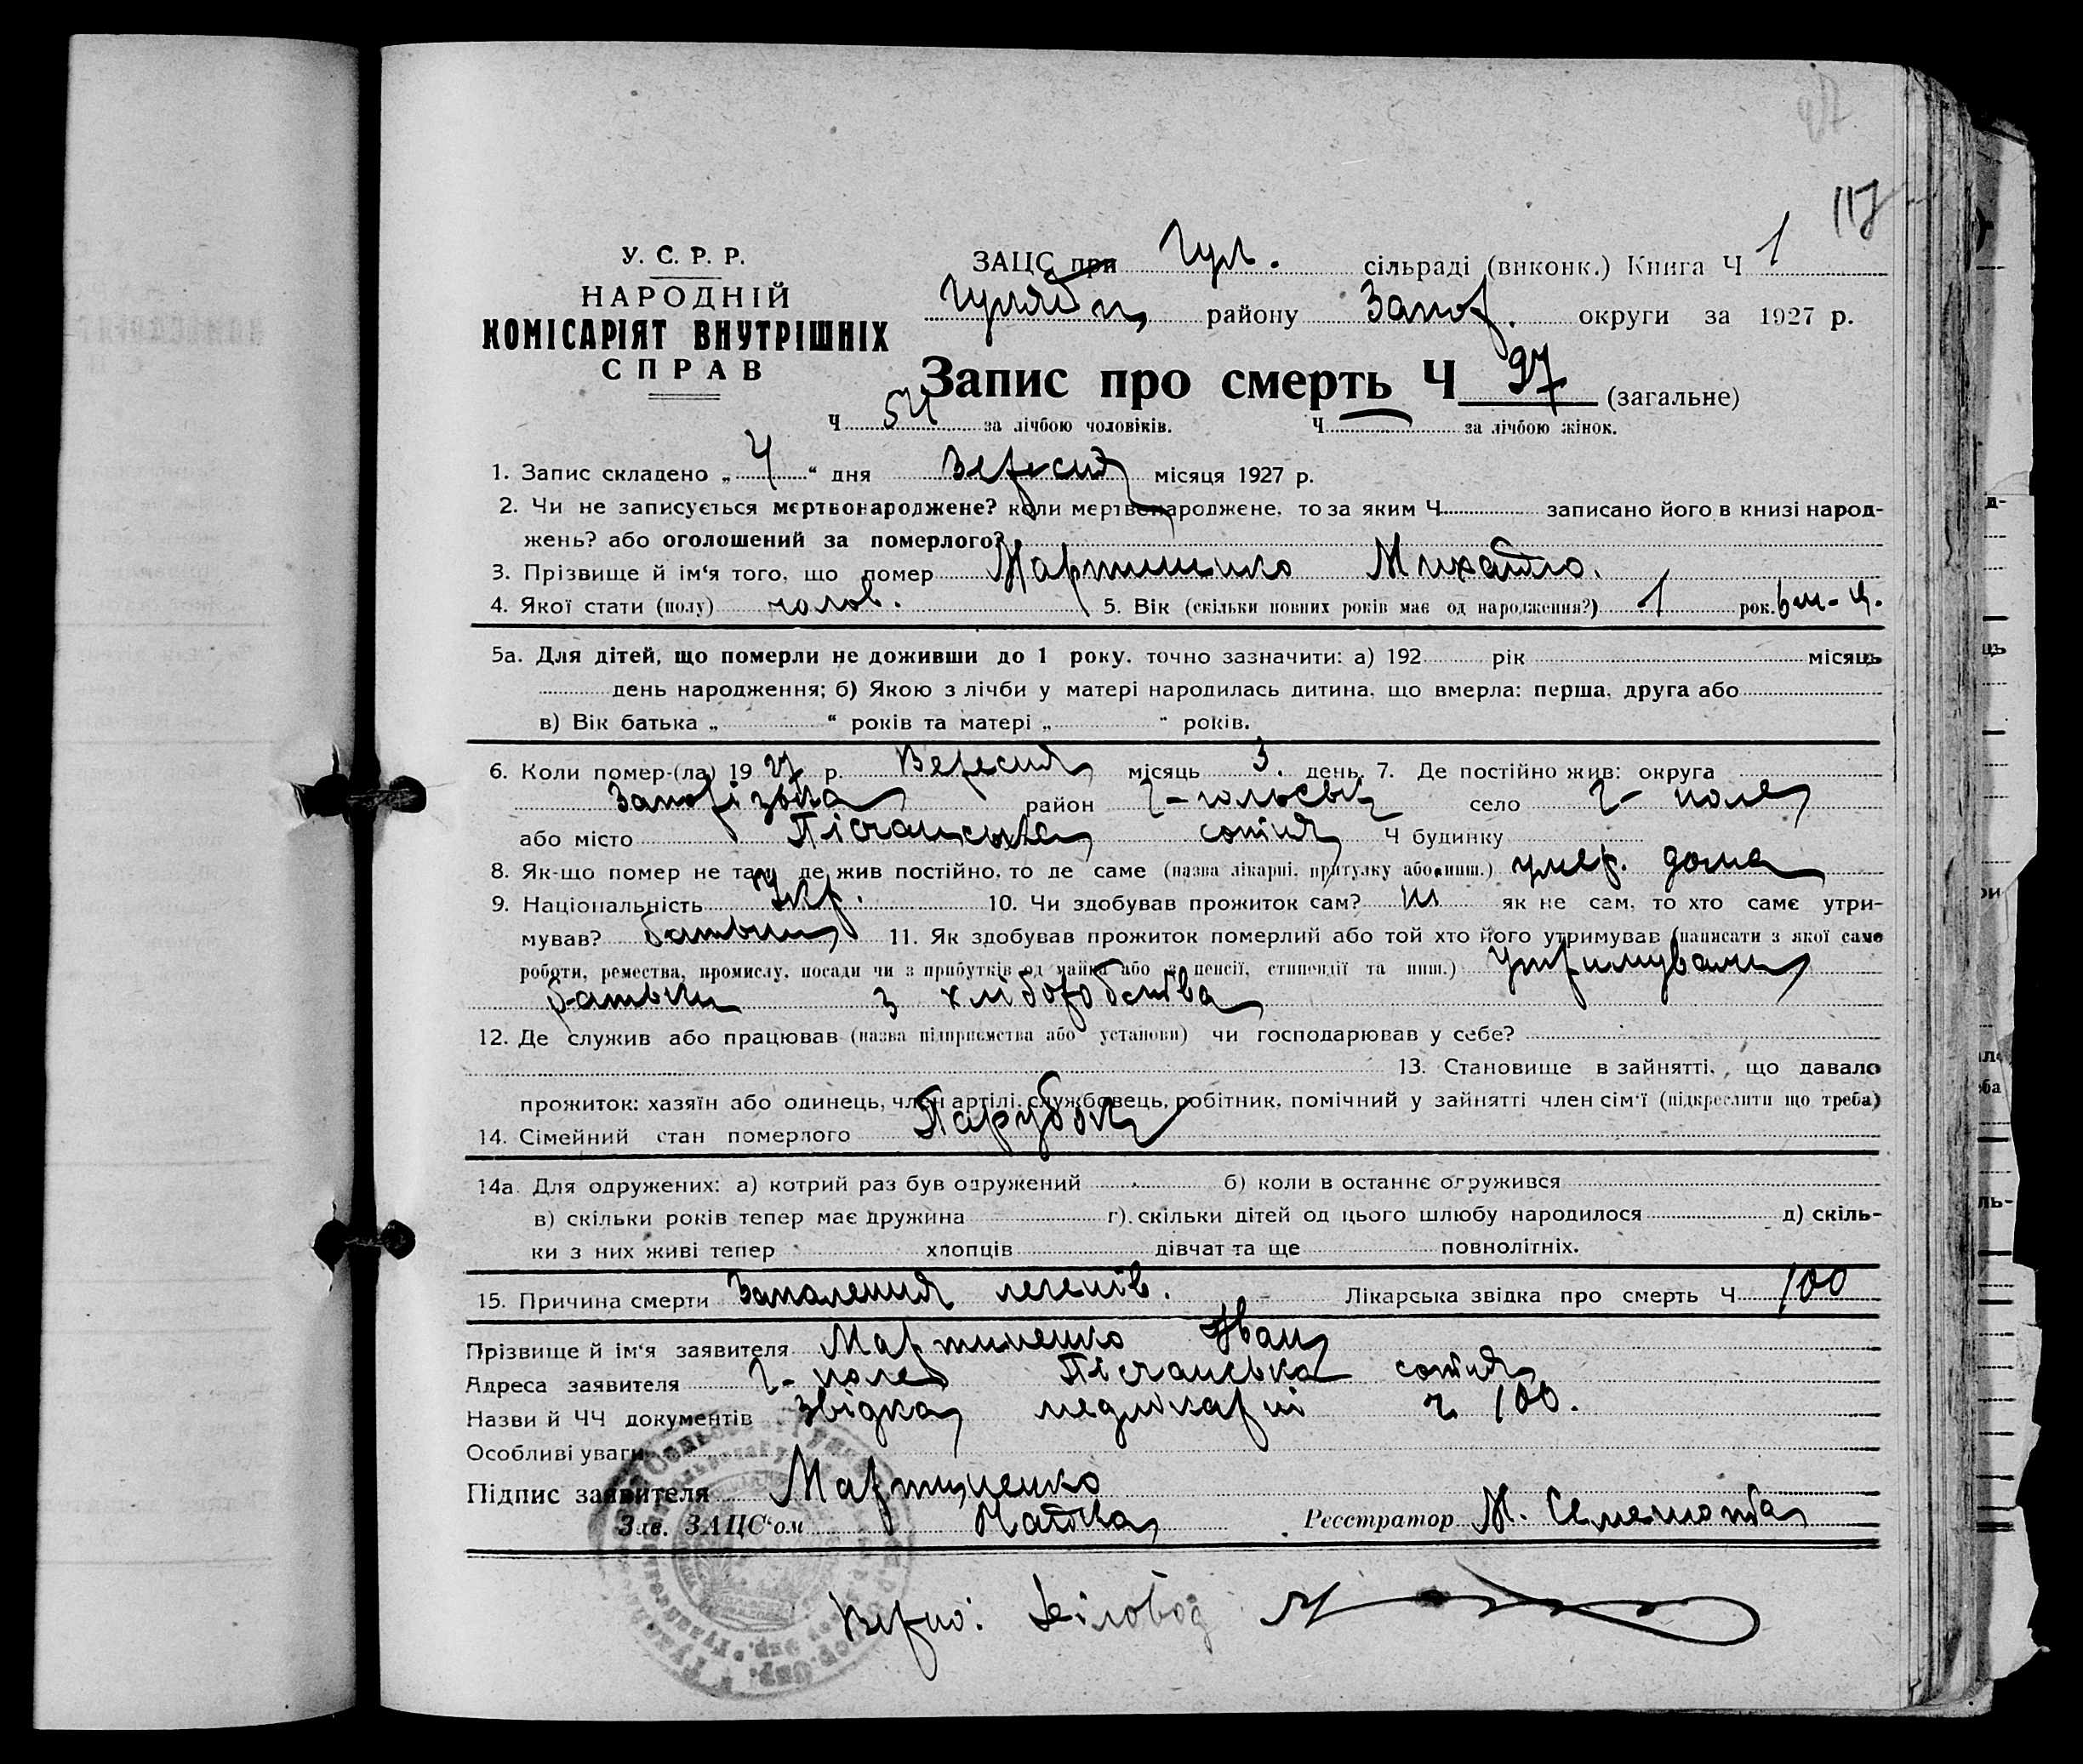 117
У. С. Р. Р.
НАРОДНІЙ
КОМІСАРІЯТ ВНУТРІШНІХ
СПРАВ
ЗАЦС при Гул. сільраді (виконк.) Книга Ч 1
району Запор. округи за 1927 р.
Запис про смерть Ч 97 (загальне)
Ч 54 за лічбою чоловіків. Ч — за лічбою жінок.
1. Запис складено „ 4 “ дня Вересня місяця 1927 р.
2. Чи не записується мертвонароджене? коли мертвонароджене, то за яким Ч записано його в книзі народ-
жень? або оголошений за померлого?
3. Прізвище й ім‘я того, що помер Мартиненко Михайло.
4. Якої стати (полу) чолов. 5. Вік (скільки повних років має од народження?) 1 рок. 6 м-ц.
5а. Для дітей, що померли не доживши до 1 року. точно зазначити: а) 192 рік місяць
день народження; б) Якою з лічби у матері народилась дитина, що вмерла: перша, друга або
в) Вік батька „ “ років та матері „ “ років.
6. Коли помер-(ла) 19 27 р. Вересня місяць 3. день. 7. Де постійно жив: округа
Запорізька район Г-польськ село Г- поле
або місто Пісчанська сотня Ч будинку
8. Як-що помер не там, де жив постійно, то де саме (назва лікарні, притулку або инш.) умер. дома
9. Національність Укр. 10. Чи здобував прожиток сам? ні як не сам, то хто саме утри-
мував? батьки 11. Як здобував прожиток померлий або той хто його утримував (написати з якої саме
роботи, ремества, промислу, посади чи з прибутків од майна або з пенсії, стипендії та инш.) Утримували
батьки з хліборобства
12. Де служив або працював (назва підприємства або установи) чи господарював у себе?
13. Становище в зайнятті, що давало
прожиток: хазяїн або одинець, член артілі, службовець, робітник, помічний у зайнятті член сім‘ї (підкреслити що треба)
14. Сімейний стан померлого Парубок
14а. Для одружених: а) котрий раз був одружений б) коли в останнє одружився
в) скільки років тепер має дружина г) скільки дітей од цього шлюбу народилося д) скіль-
ки з них живі тепер хлопців дівчат та ще повнолітніх.
15. Причина смерти Запалення легенів. Лікарська звідка про смерть Ч 100
Прізвище й ім‘я заявителя Мартиненко Иван
Адреса заявителя Г- поле Пісчанська сотня
Назви й ЧЧ документів звідка медлікарні ч 100.
Особливі уваги
Підпис заявителя Мартиненко
Зав. ЗАЦС‘ом Реєстратор М.
Верно: Біловод